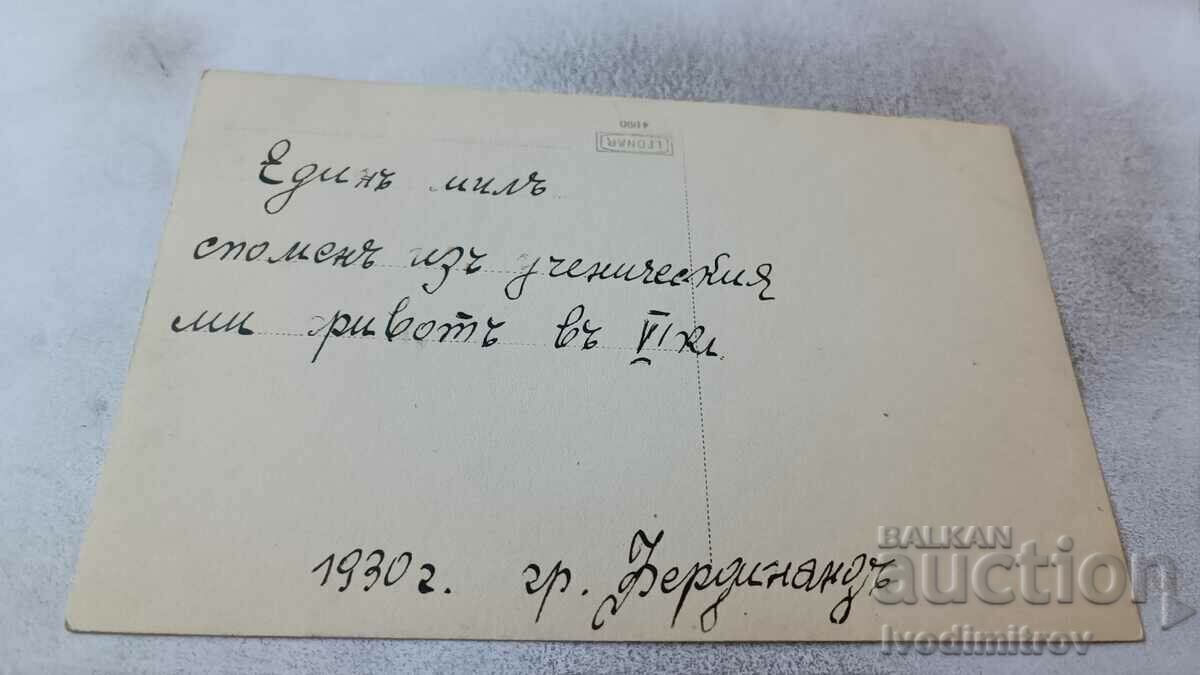 LEONAR
Единъ милъ
споменъ изъ ученическия
ми животъ въ VI кл.
1930 г. гр. Фердинандъ
BALKAN
auction
Ivodimitrov